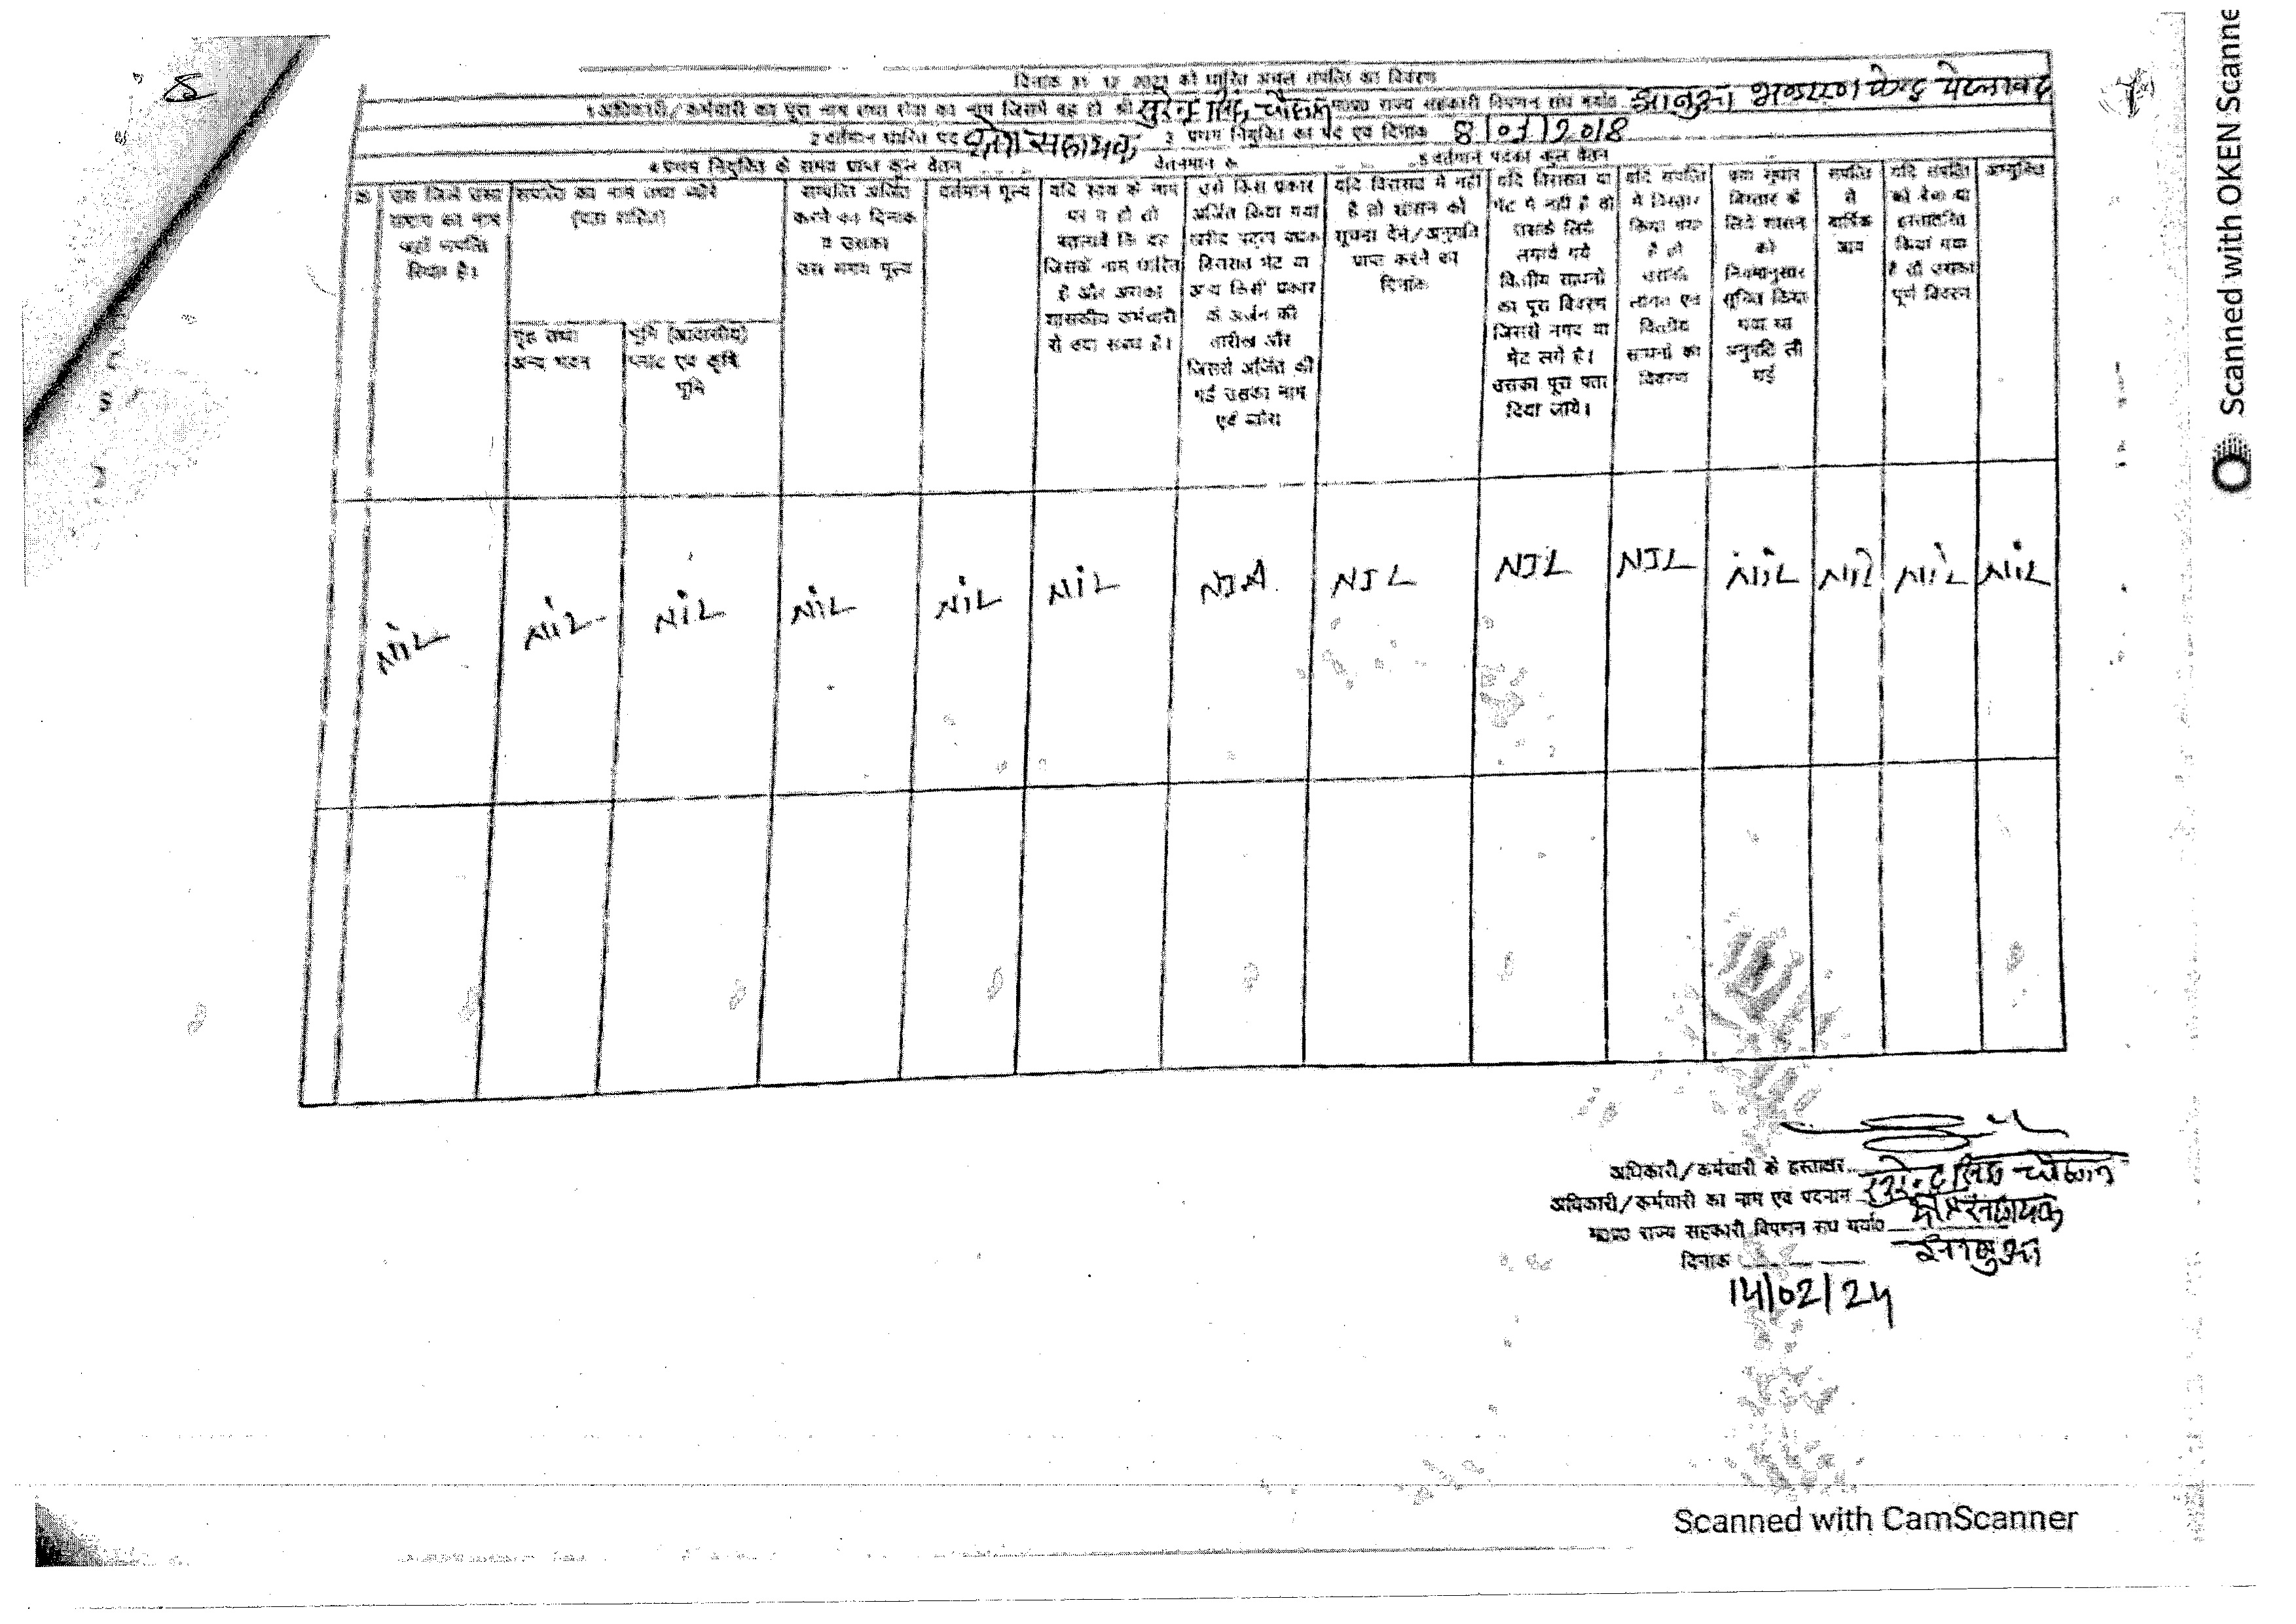 8
दिनांक 31 12 2023 को धारित अचल संपत्ति का विवरण
1 अधिकारी/कर्मचारी का पूरा नाम तथा सेवा का नाम जिसमें वह हो श्री सुरेन्द्र सिंह चौहान म०प्र० राज्य सहकारी विपणन संघ मर्या० झाबुआ भण्डारण केन्द्र पेटलावद
2 वर्तमान धारित पद क्षेत्र सहायक 3 प्रथम नियुक्ति का पद एवं दिनांक 8/01/2018
4 प्रथम नियुक्ति के समय प्राप्त कुल वेतन वेतनमान रू 5 वर्तमान पदका कुल वेतन
उस जिले उस्त का नाम जहाँ संपत्ति स्थित है।
सम्पत्ति का नाम तथा ब्योरे
गृह तथा अन्य भवन
भूमि (आवासीय) प्लाट एवं कृषि भूमि
सम्पत्ति अर्जित करने का दिनांक व उसका उस समय मूल्य
वर्तमान मूल्य
यदि स्वयं के नाम पर न हो तो बतलावें कि वह जिसके नाम धारित है और उसका शासकीय कर्मचारी से क्या संबंध है।
उसे किस प्रकार अर्जित किया गया खरीद पट्टा बंधक विरासत भेंट या अन्य किसी प्रकार के अर्जन की तारीख और जिससे अर्जित की गई उसका नाम एवं ब्योरा
यदि विरासत में नहीं है तो शासन को सूचना देने/अनुमति प्राप्त करने का दिनांक
यदि विरासत या भेंट में नहीं है तो उसके लिये लगाये गये वित्तीय साधनों का पूरा विवरण जिससे नगद या भेंट लगे है। उसका पूरा पता दिया जाये।
यदि संपत्ति में विस्तार किया गया है तो उसकी लागत एवं वित्तीय साधनों का विवरण
क्या सुधार विस्तार के लिये शासन को नियमानुसार सूचित किया गया था अनुमति ली गई
संपत्ति से वार्षिक आय
यदि संपत्ति को बेचा या हस्तांतरित किया गया है तो उसका पूर्ण विवरण
अभ्युक्ति
NiL NiL NiL NiL NiL NiL NIA. NIL NIL NIL NiL NiL NiL NiL
अधिकारी/कर्मचारी के हस्ताक्षर
अधिकारी/कर्मचारी का नाम एवं पदनाम सुरेन्द्र सिंह चौहान
क्षेत्र सहायक
म०प्र० राज्य सहकारी विपणन संघ मर्या० झाबुआ
दिनांक
14/02/24
Scanned with CamScanner
Scanned with OKEN Scanne